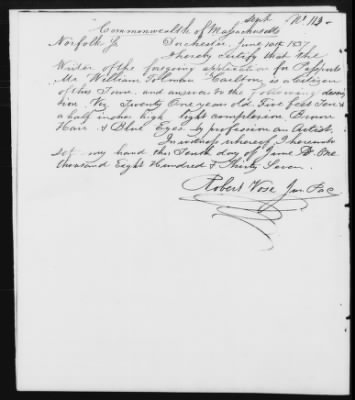 Sept No 113
Commonwealth of Massachusetts
Norfolk Ss Dorchester June 10th 1837
I hereby certify that the
Writer of the foregoing application for Passports
Mr William Tolman Carlton, is a Citizen
of this Town. and answers to the following
him Viz. Twenty One years old. Five feet Ten &
a half inches high light complexion. Brown
Hair & Blue Eyes. by profession an Artist.
In witness whereof I hereunto
set my hand this Tenth day of June AD One
thousand Eight Hundred & Thirty Seven.
Robert Vose Jus. Pac